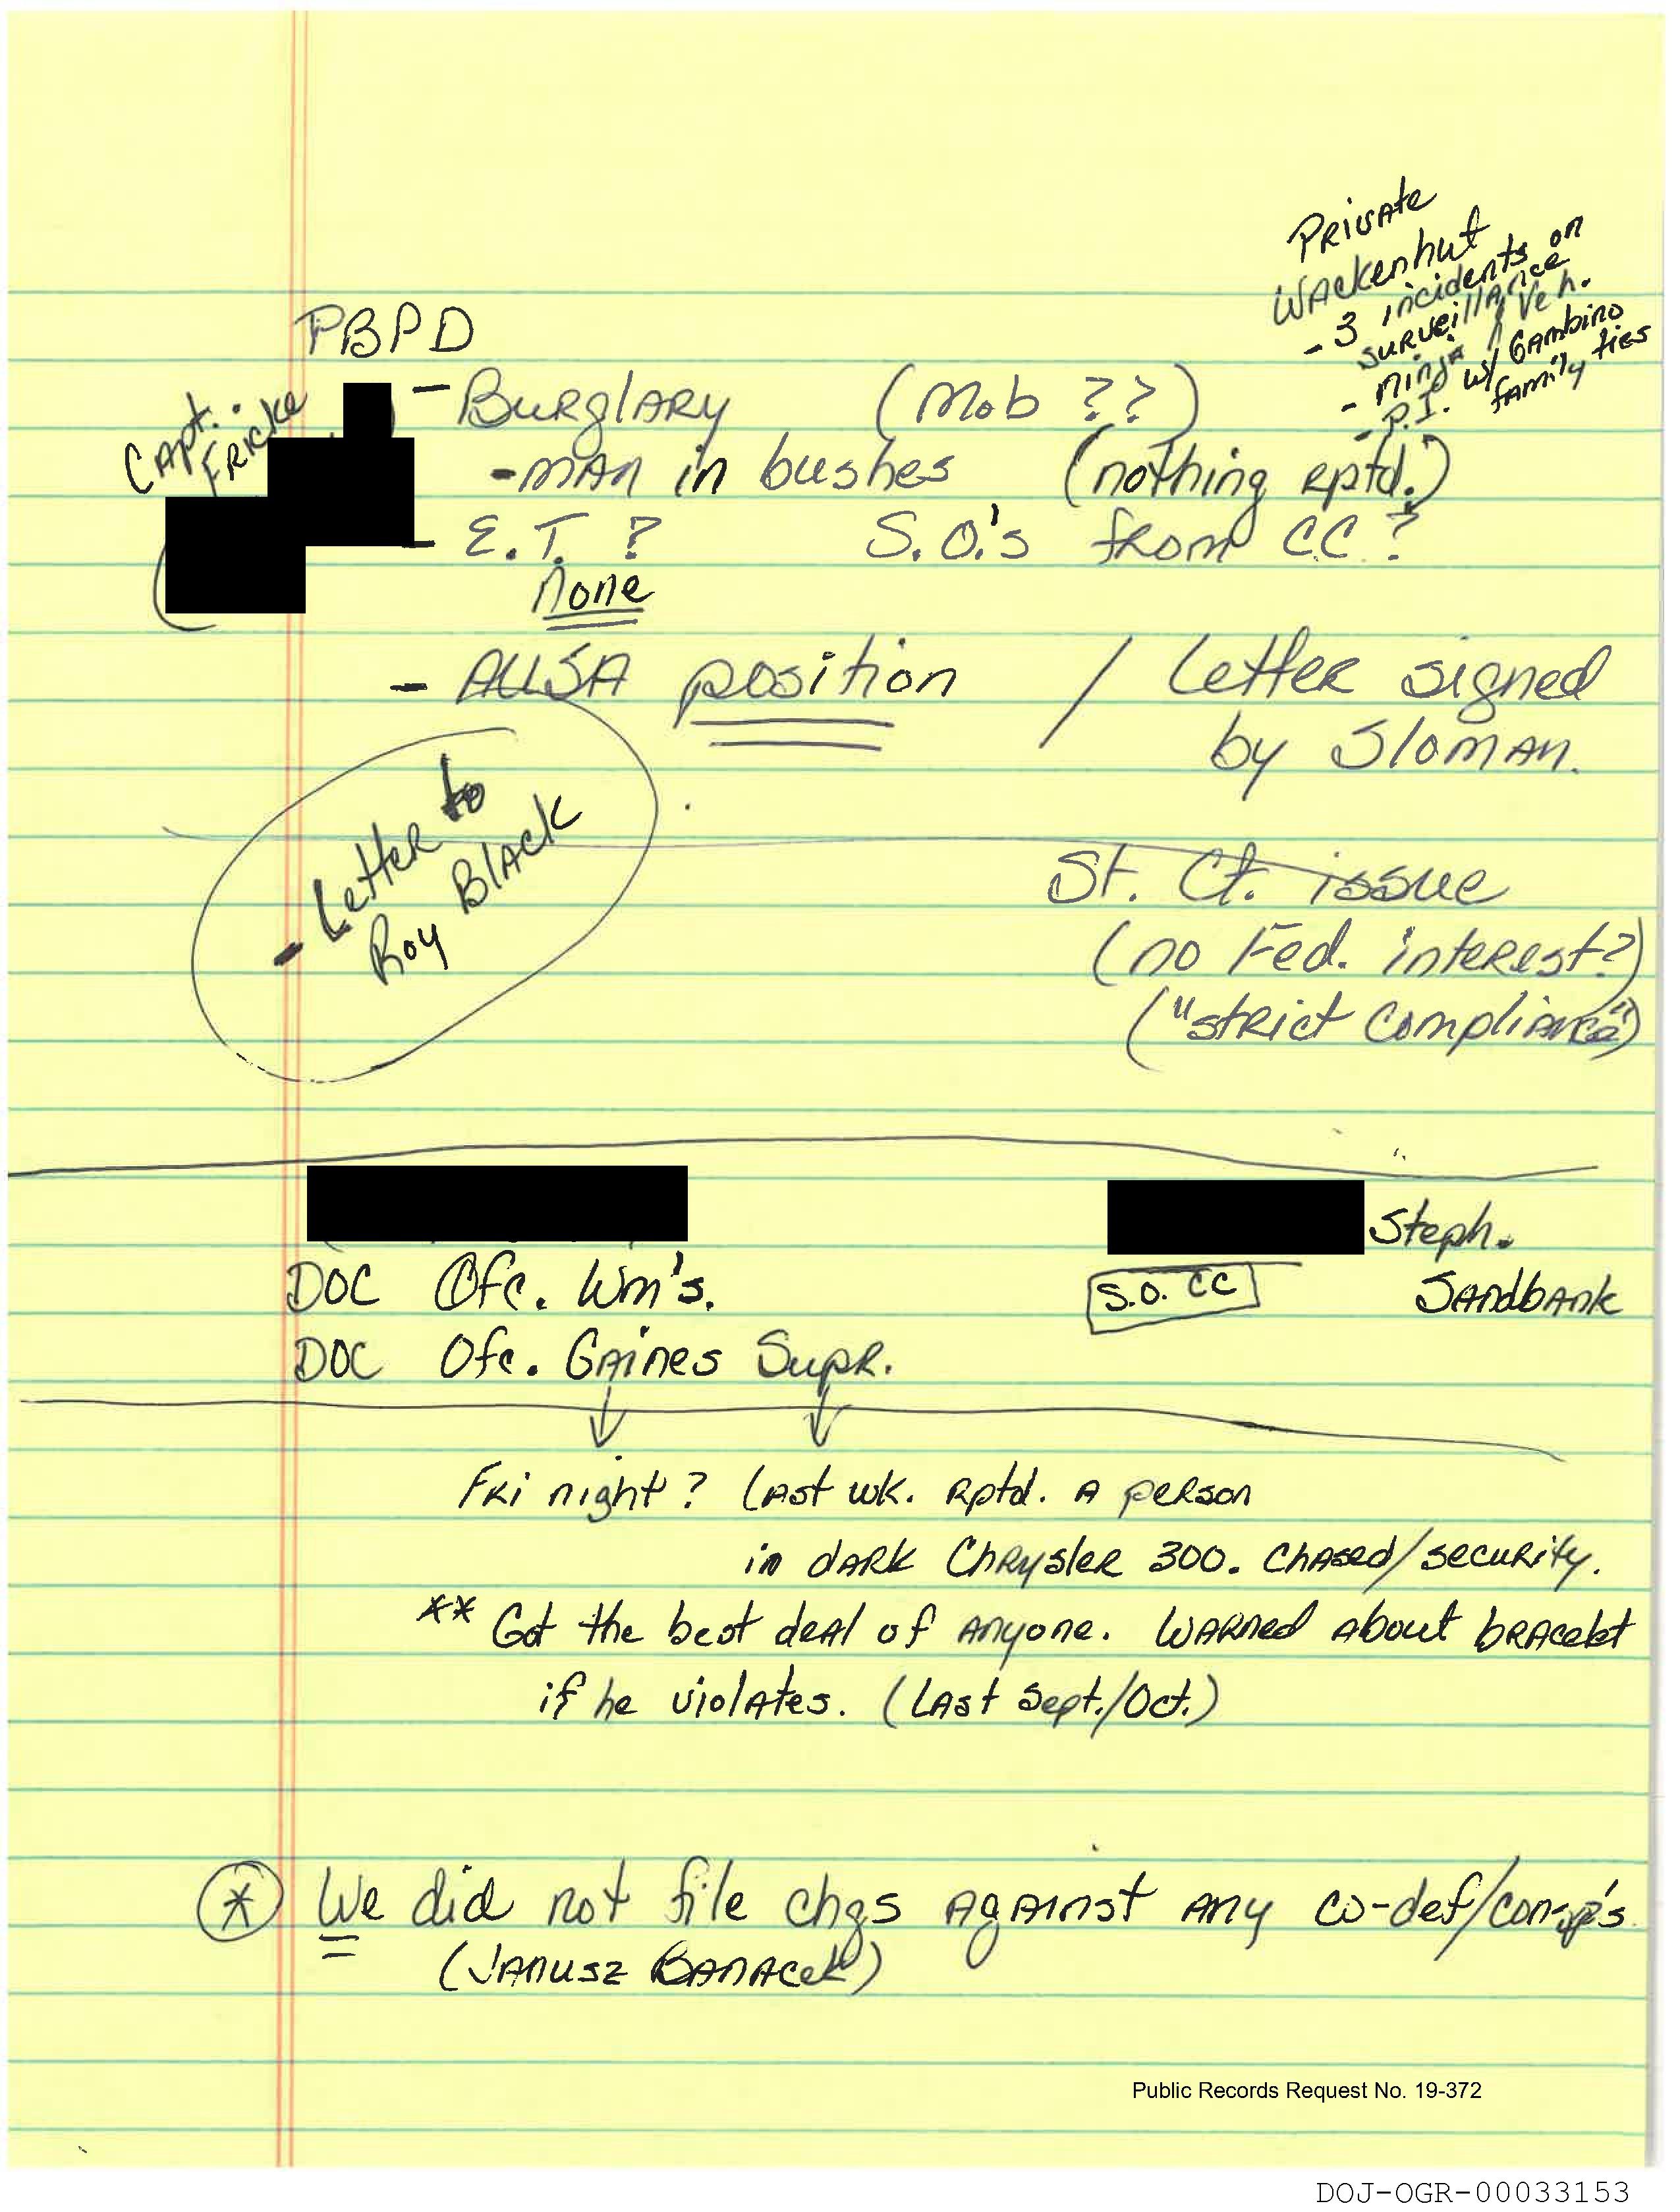 Private
Wackenhut
- 3 incidents on
surveillance
- ninja / Veh.
- P.I. w/ Gambino
family ties
PBPD
Capt.
Fricke
- Burglary (Mob ??)
- man in bushes (nothing rptd.)
- E.T. ? S.O.'s from CC ?
None
- AUSA position / Letter signed
by Sloman.
- Letter to
Roy Black
St. Ct. issue
(no Fed. interest?)
("strict compliance")
Steph.
DOC Ofc. Wm's. S.O. CC Sandbank
DOC Ofc. Gaines Supr.
Fri night? Last wk. Rptd. a person
in dark Chrysler 300. Chased/security.
** Got the best deal of anyone. Warned about bracelet
if he violates. (Last Sept./Oct.)
* We did not file chgs against any co-def/consp's.
(Janusz Banacek)
Public Records Request No. 19-372
DOJ-OGR-00033153